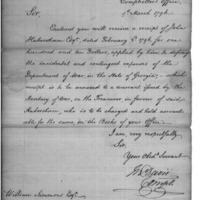 Comptrollers Office,
1st March 1796.
Sir,
Enclosed you will receive a receipt of John
Habersham Esqr. dated February 2d 1796 for one
hundred and ten Dollars, applied by him to defray
the incidental and contingent expences of the
Department of War, in the State of Georgia; which
receipt is to be annexed to a warrant issued by the
Secretary of War, on the Treasurer in favour of said
Habersham, who is to be charged and held account-
able for the same, in the Books of your Office.
I am, very respectfully
Sir,
Your Obdt. Servant
Jn. Davis
William Simmons Esqr.